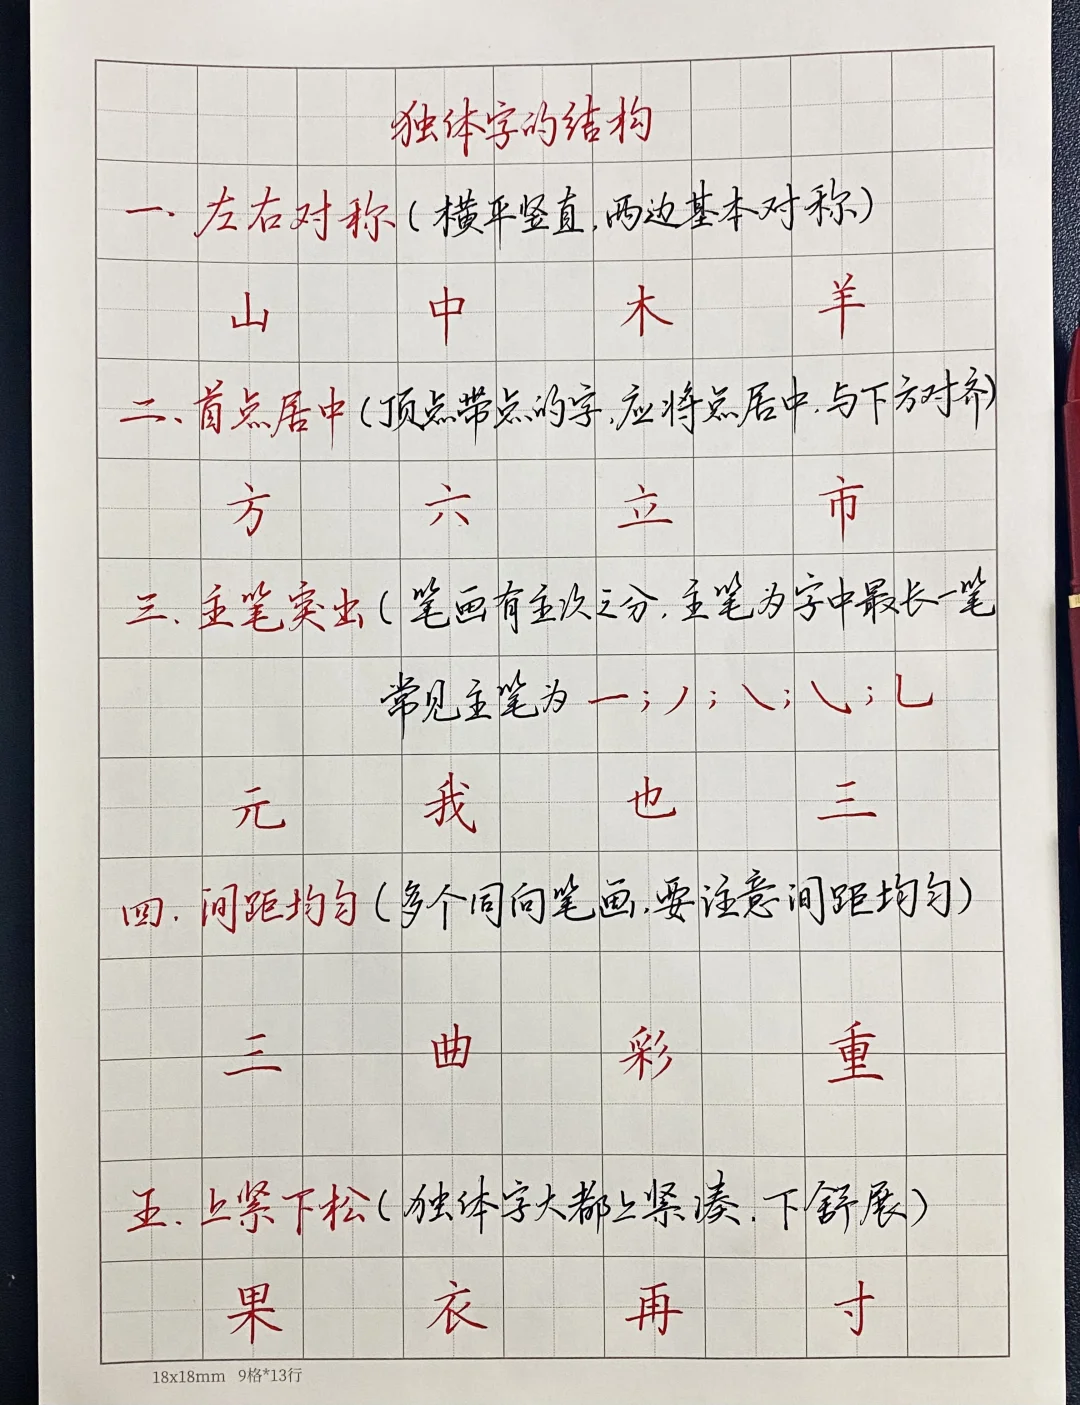 独体字的结构
一.左右对称(横平竖直,两边基本对称)
山 中 木 羊
二、首点居中(顶点带点的字,应将点居中,与下方对齐)
方 六 立 市
三、主笔突出(笔画有主次之分,主笔为字中最长一笔
常见主笔为 一;丿;㇏;㇂;乚
元 我 也 三
四.间距均匀(多个同向笔画,要注意间距均匀)
三 曲 彩 重
五.上紧下松(独体字大都上紧凑.下舒展)
果 衣 再 寸
18x18mm 9格*13行